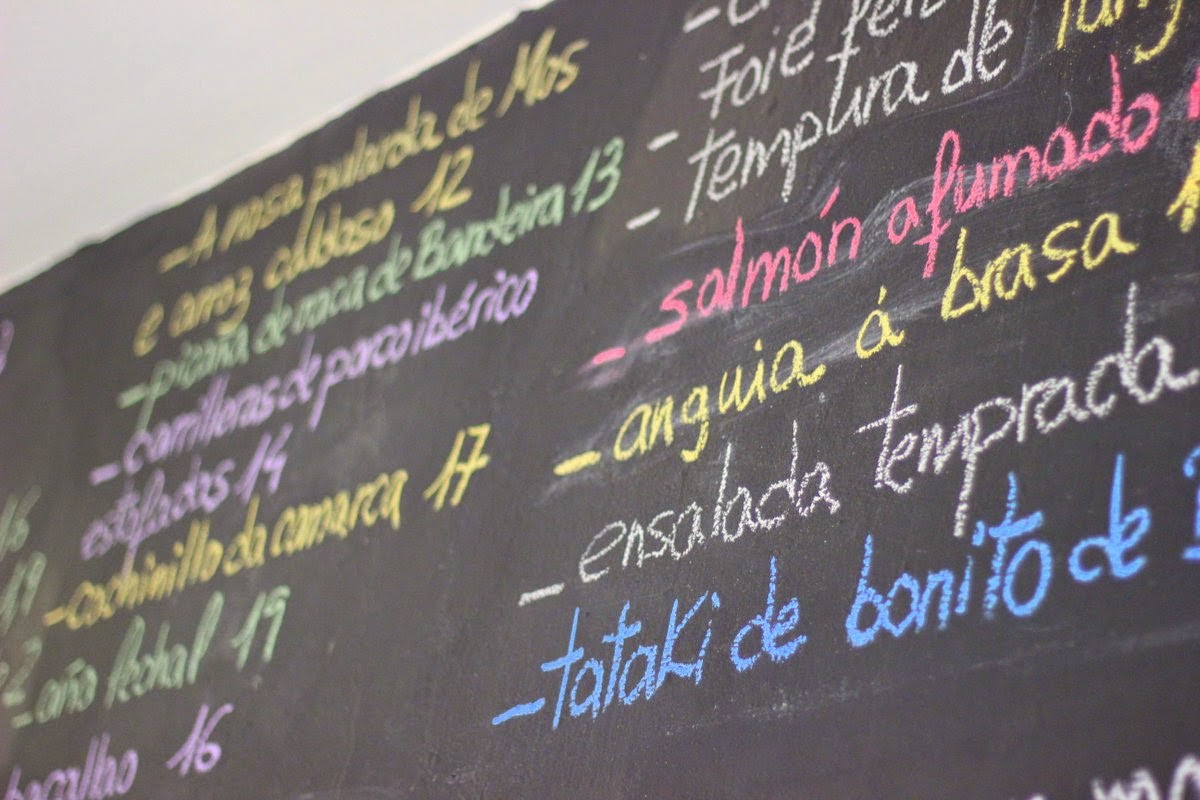 - A nosa pularda de Mos
e arroz caldoso 12
- picaña de vaca de Bandeira 13
- carrilleras de porco ibérico
estofadas 14
- cochinillo da comarca 17
- año lechal 19
bacalho 16
16
19
2
- Foie
- tempura de
- salmón afumado
- anguia á brasa
- ensalada temprada
- tataki de bonito de